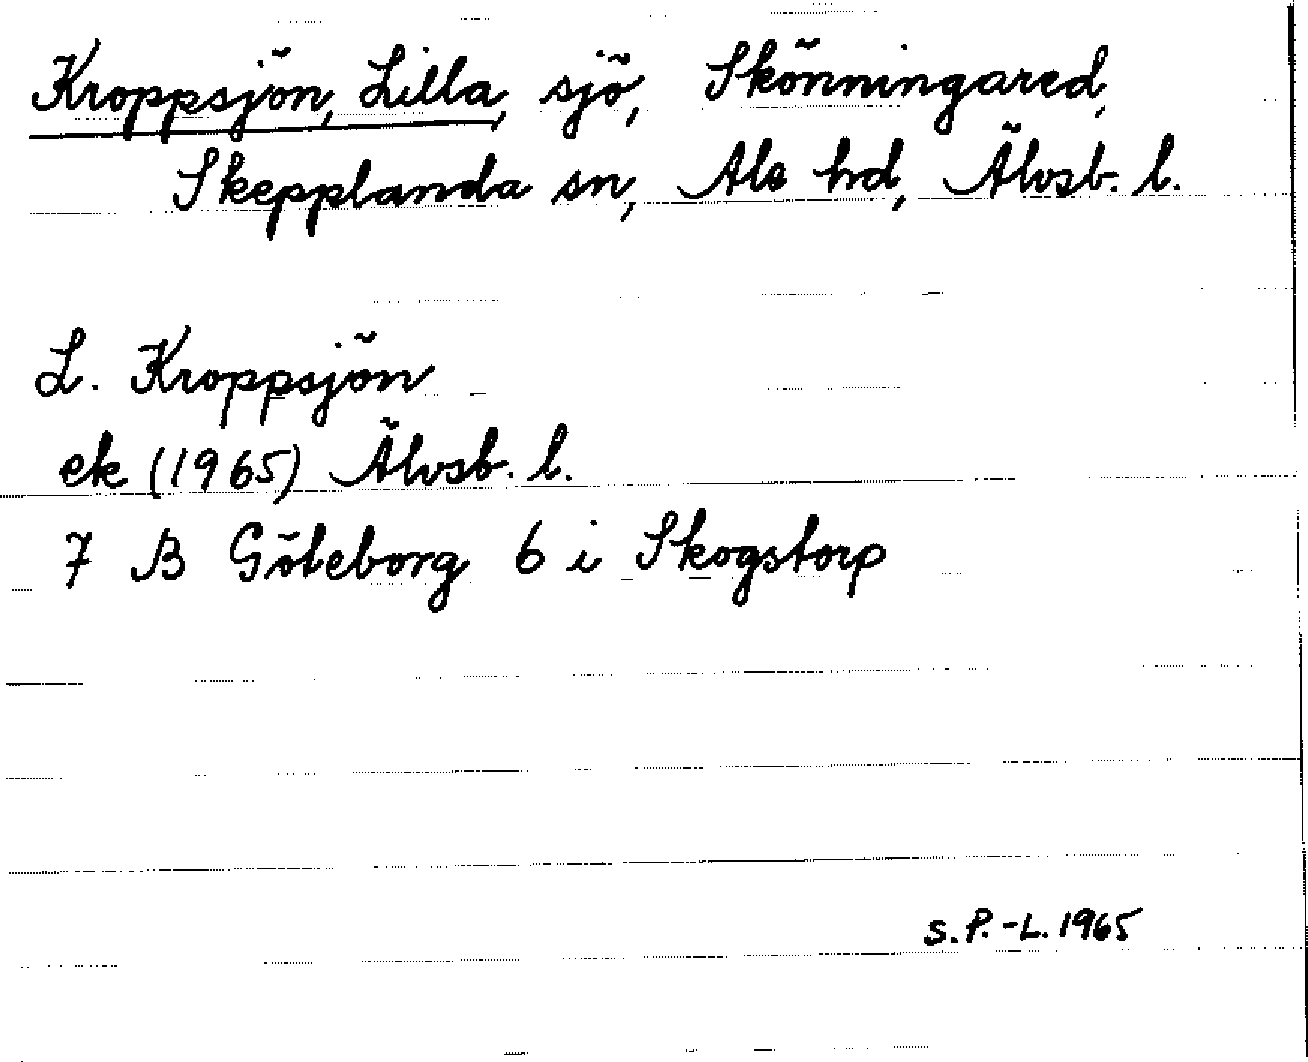 Kroppsjön, Lilla, sjö, Skönningared,
Skepplanda sn, Ale hd, Älvsb. l.
L. Kroppsjön
ek (1965) Älvsb. l.
7 B Göteborg 6 i Skogstorp
S. P.-L. 1965